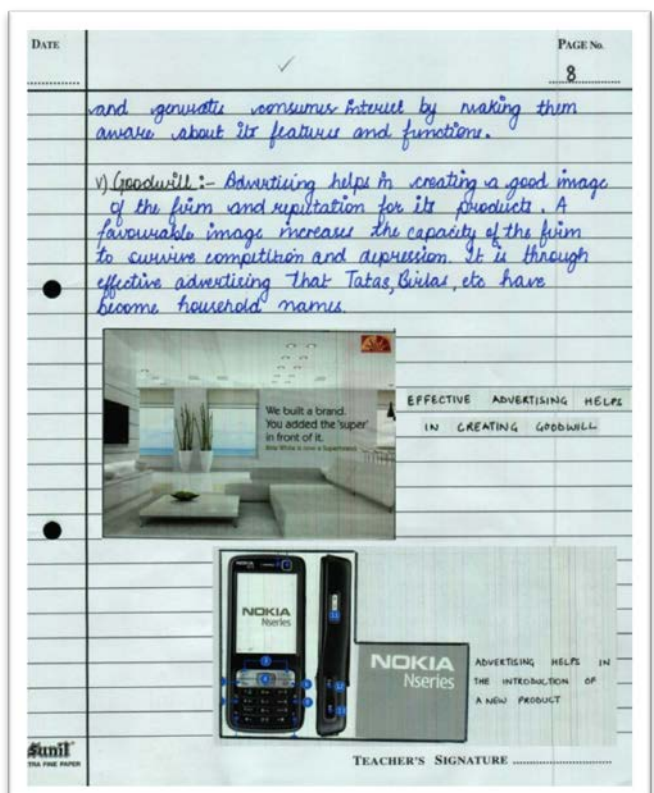 DATE
PAGE No.
8
and generates consumer interest by making them
aware about its features and functions.
v) Goodwill :- Advertising helps in creating a good image
of the firm and reputation for its products. A
favourable image increases the capacity of the firm
to survive competition and depression. It is through
effective advertising that Tatas, Birlas, etc have
become household names.
We built a brand.
You added the 'super'
in front of it.
Birla White is now a Superbrand.
EFFECTIVE ADVERTISING HELPS
IN CREATING GOODWILL
NOKIA
NOKIA
Nseries
NOKIA
Nseries
ADVERTISING HELPS IN
THE INTRODUCTION OF
A NEW PRODUCT
Sunil
TRA FINE PAPER
TEACHER'S SIGNATURE